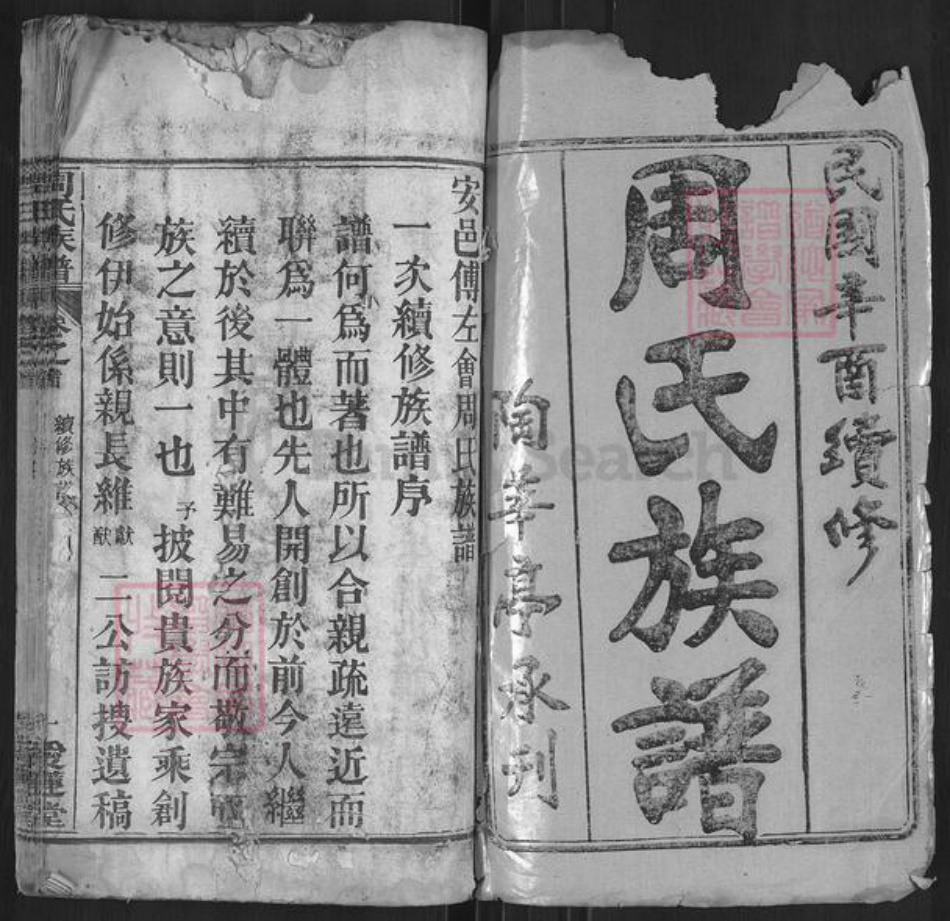 民國辛酉續修
周氏族譜
陶華亭承刊
安邑傅左會周氏族譜
一次續修族譜序
譜何爲而著也所以合親疏遠近而
聯爲一體也先人開創於前今人繼
續於後其中有難易之分而敬宗
族之意則一也予披閱貴族家乘創
修伊始係親長維獻猷二公訪搜遺稿
周氏族譜 卷之首
續修族譜